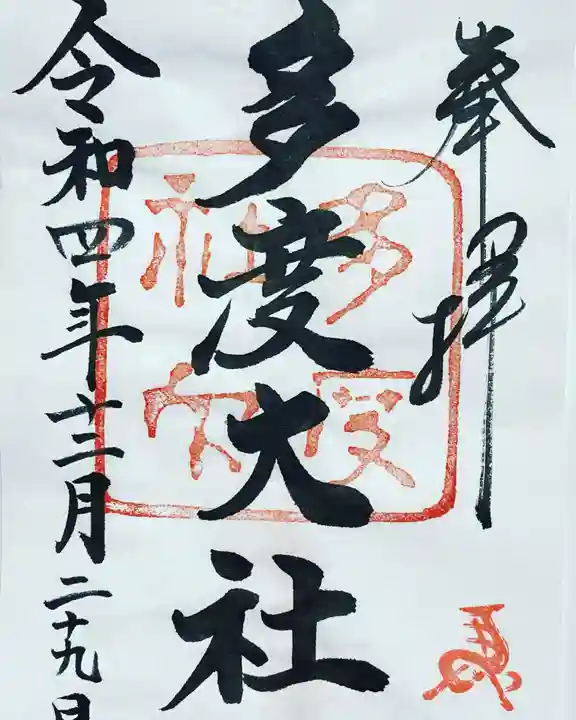 奉拝
多度大社
令和四年十二月二十九日
多度神社